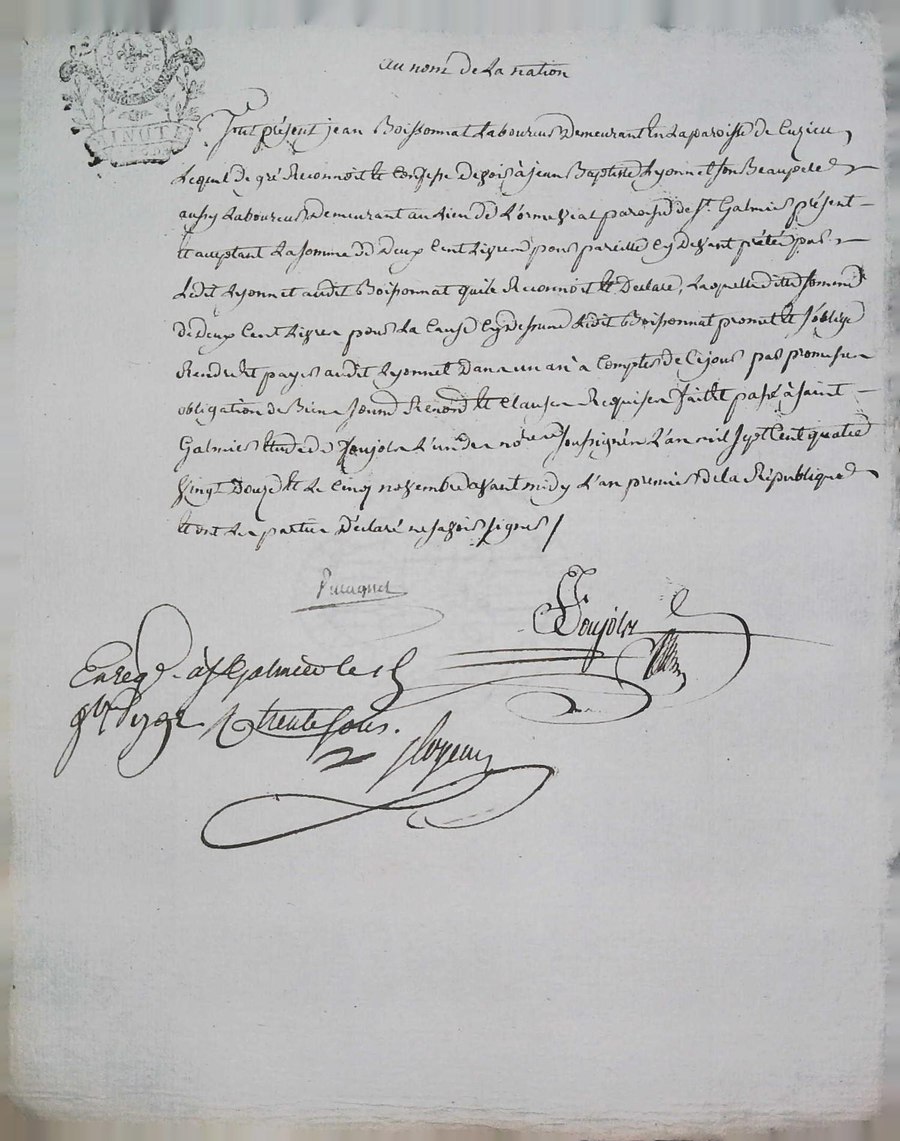 MINUTE
au nom de La nation
fut présent jean Boissonnat Laboureur Demeurant En La paroisse de Cuzieu
Lequel de gré Reconnoit Et Confesse Devoir à jean Baptiste Lyonnet son Beaupere
aussy Laboureur Demeurant au Lieu de L'ormevial paroisse de St. Galmier présent
Et acceptant La somme de Deux Cent Livres pour pareille Cy Devant prétée par
Ledit Lyonnet audit Boissonnat qu'ile Reconnoit Et Declare, Laquelle ditte somme
de deux Cent Livres pour La Cause Cy Dessus Ledit Boissonnat promet Et s'oblige
Rendre Et payer audit Lyonnet Dans un an à Compter de Cejour par promesse
obligation de Biens soumd Renond Et Clauses Requises fait Et passé à saint
Galmier Etude de Joujols L'un des nores soussignés L'an mil sept Cent quatre
vingt Douze Et Le Cinq novembre avant midy L'an premier de la République
Et ont Les parties Déclaré ne savoir signer /
Joujols
Enregé. à st Galmier le
9bre 1792 R trente sous.